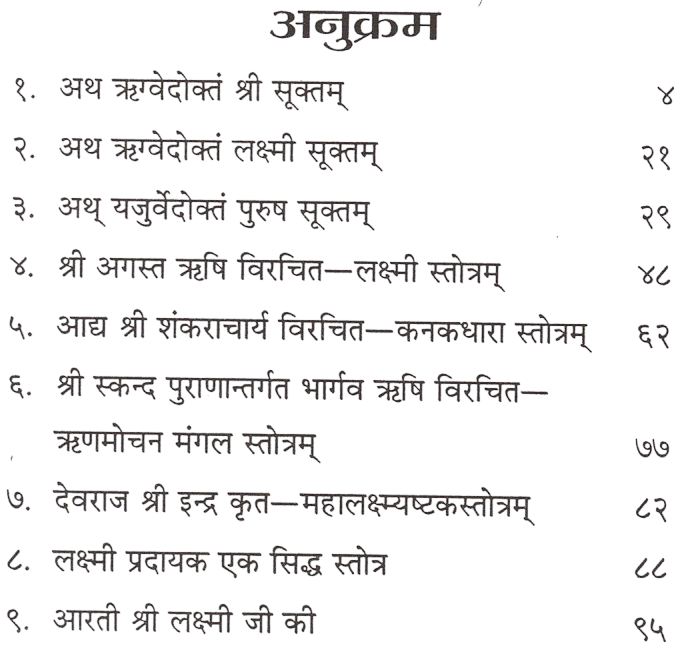 अनुक्रम
१. अथ ऋग्वेदोक्तं श्री सूक्तम् ४
२. अथ ऋग्वेदोक्तं लक्ष्मी सूक्तम् २१
३. अथ् यजुर्वेदोक्तं पुरुष सूक्तम् २९
४. श्री अगस्त ऋषि विरचित—लक्ष्मी स्तोत्रम् ४८
५. आद्य श्री शंकराचार्य विरचित—कनकधारा स्तोत्रम् ६२
६. श्री स्कन्द पुराणान्तर्गत भार्गव ऋषि विरचित—
ऋणमोचन मंगल स्तोत्रम् ७७
७. देवराज श्री इन्द्र कृत—महालक्ष्म्यष्टकस्तोत्रम् ८२
८. लक्ष्मी प्रदायक एक सिद्ध स्तोत्र ८८
९. आरती श्री लक्ष्मी जी की ९५